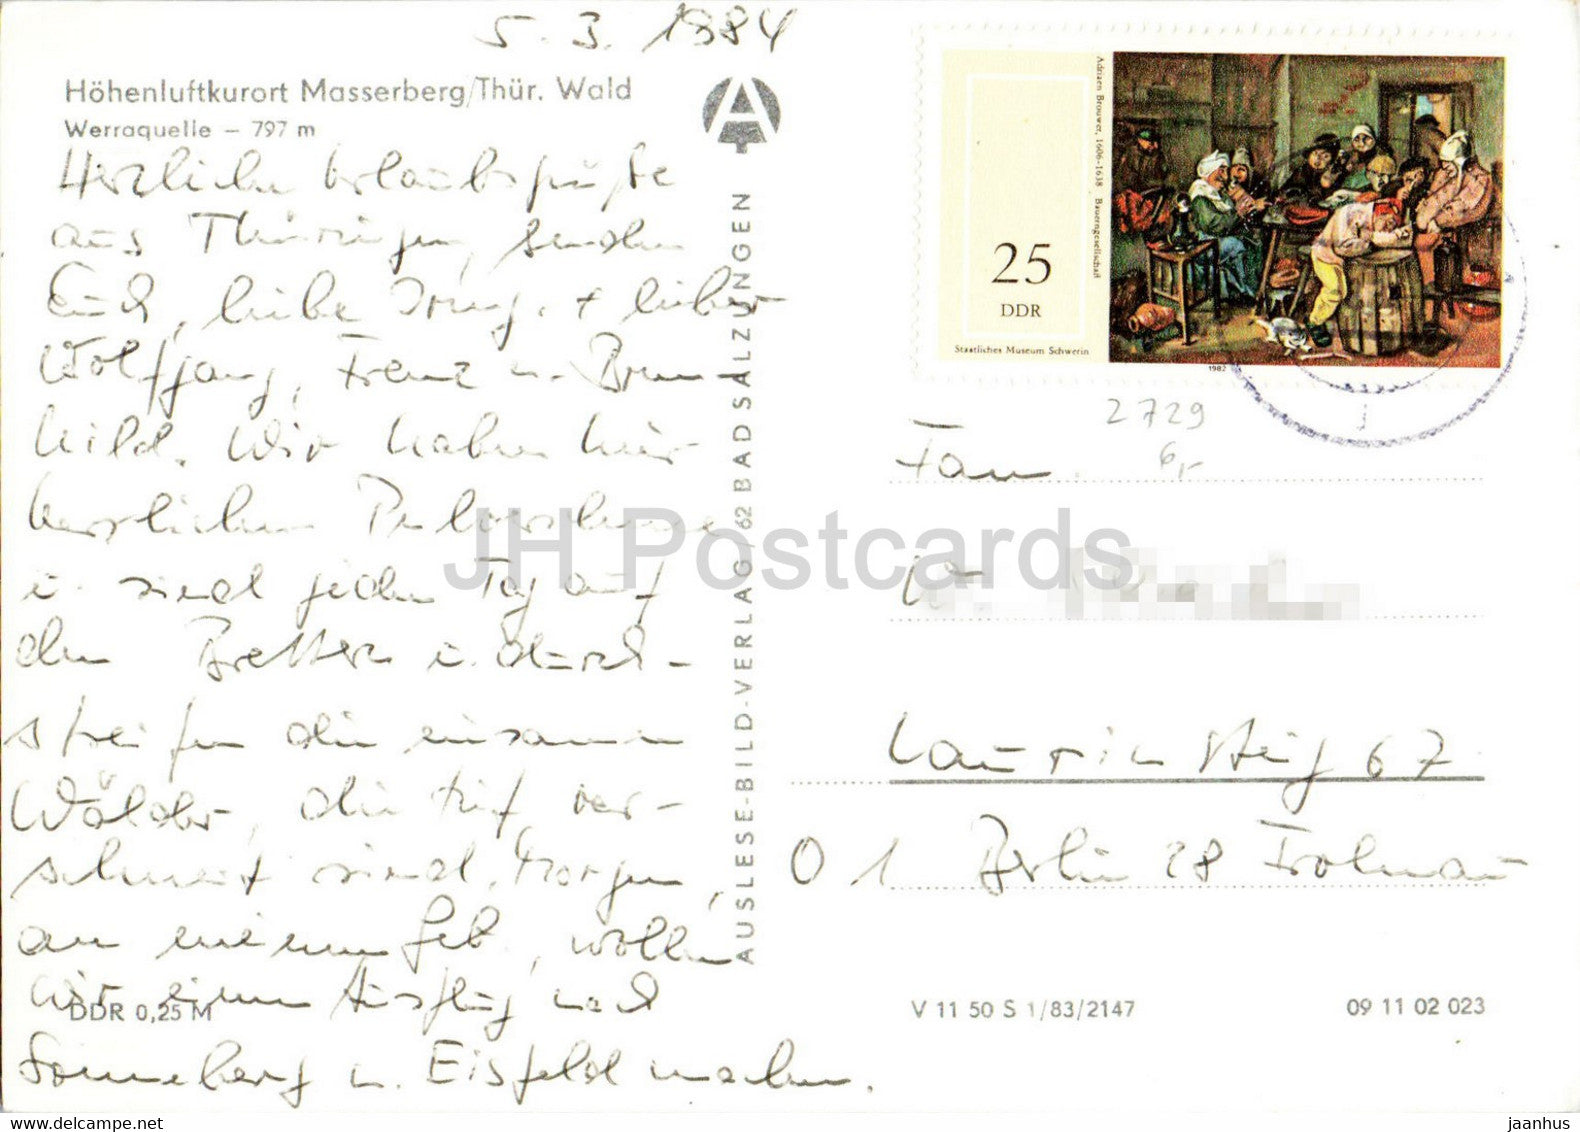 5. 3. 1984
Höhenluftkurort Masserberg/Thür. Wald
Werraquelle – 797 m
Herzliche Urlaubsgrüße
aus Thüringen, senden
Euch, liebe + lieber
Wolfgang, Franz u. Brun-
hild. Wir haben hier
herrlichen Pulverschnee
u. sind jeden Tag auf
den Brettern u. durch-
streifen die einsamen
Wälder, die tief ver-
schneit sind. Morgen,
an meinem Geb., wollen
wir einen Ausflug nach
Sonneberg u. Eisfeld machen.
DDR 0,25 M
AUSLESE-BILD-VERLAG / 62 BAD SALZUNGEN
Adriaen Brouwer, 1606-1638 Bauerngesellschaft
25
DDR
Staatliches Museum Schwerin
1982
2729
6,-
Fam.
W.
Laurinsteig 67
O 1 Berlin 28 Frohnau
V 11 50 S 1/83/2147
09 11 02 023
JH Postcards
delcampe.net
jaanhus